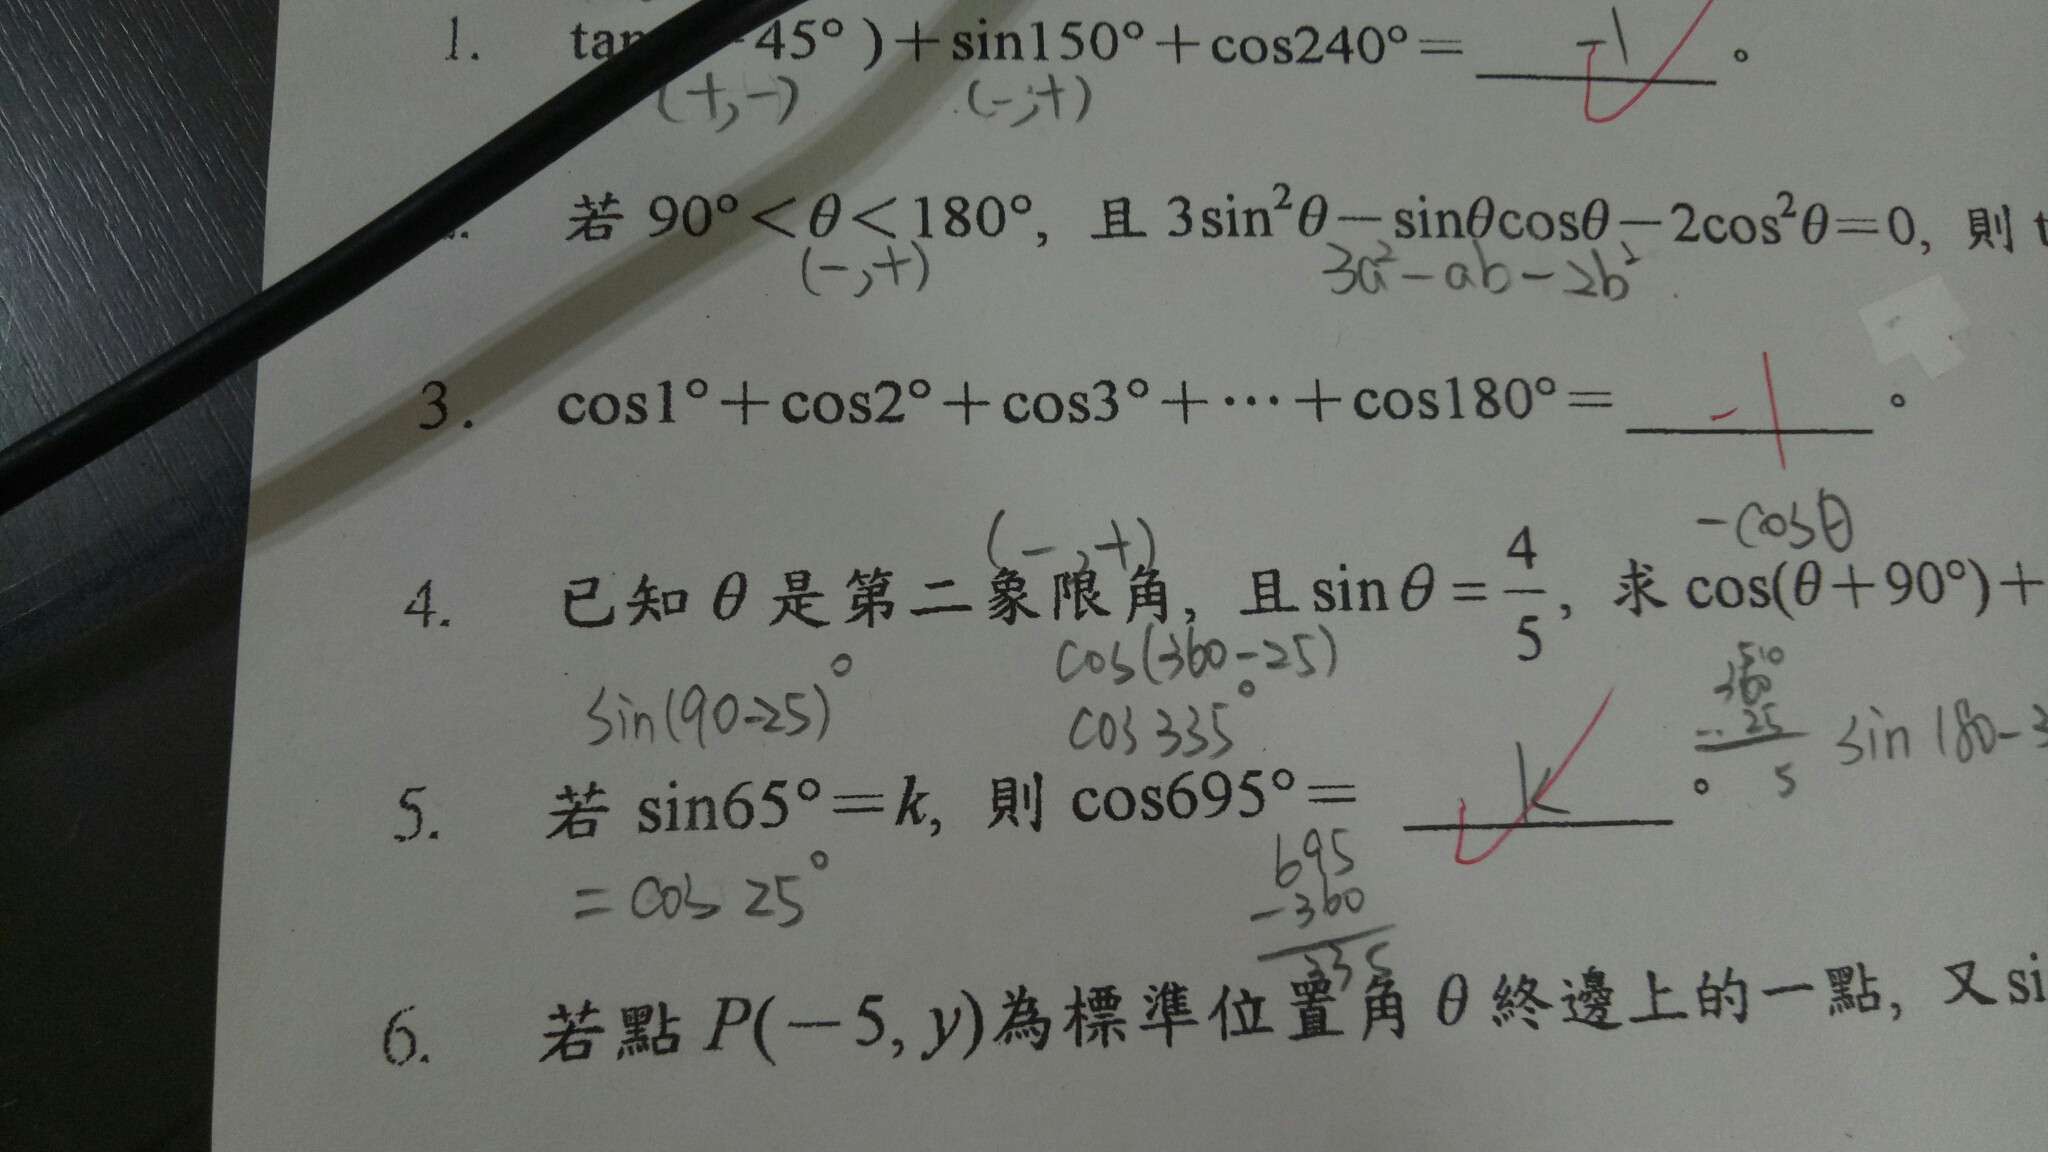 1. tan 45°)+sin150°+cos240°= -1 。
(+,-) (-,+)
若 90°<θ<180°, 且 3sin²θ-sinθcosθ-2cos²θ=0, 則 t
(-,+) 3a²-ab-2b²
3. cos1°+cos2°+cos3°+⋯+cos180°= -1 。
(-,+) -cosθ
4. 已知 θ 是第二象限角, 且 sinθ=4/5, 求 cos(θ+90°)+
sin(90-25)° cos(360-25)
cos335° 360
-25
5 sin 180-3
5. 若 sin65°=k, 則 cos695°= k 。
=cos 25° 695
-360
335
6. 若點 P(-5, y)為標準位置角 θ 終邊上的一點, 又 si